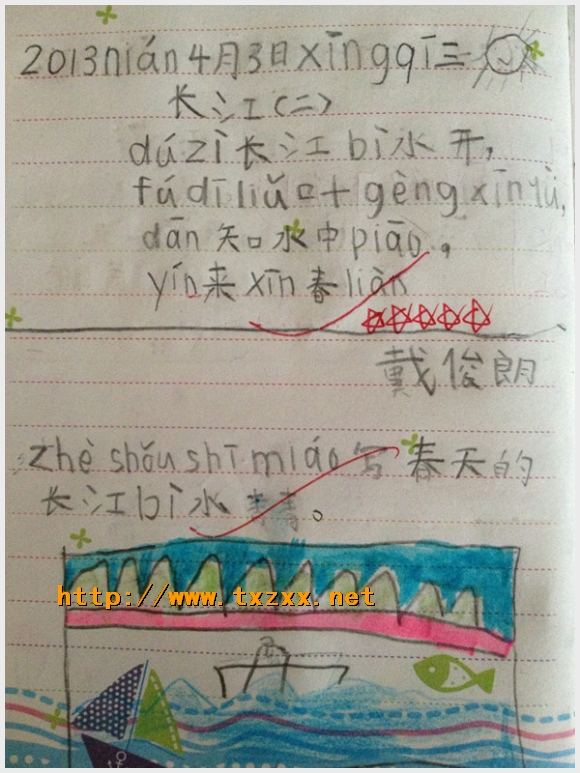 2013nián4月3日xīngqī三
长江(二)
dúzì长江bì水开,
fúdīliǔ口十gèngxīnyù,
dān知水中piāo。
yín来xīn春liàn
戴俊朗
zhè shǒu shī miáo写春天的
长江bì水
。
http://www.txzxx.net